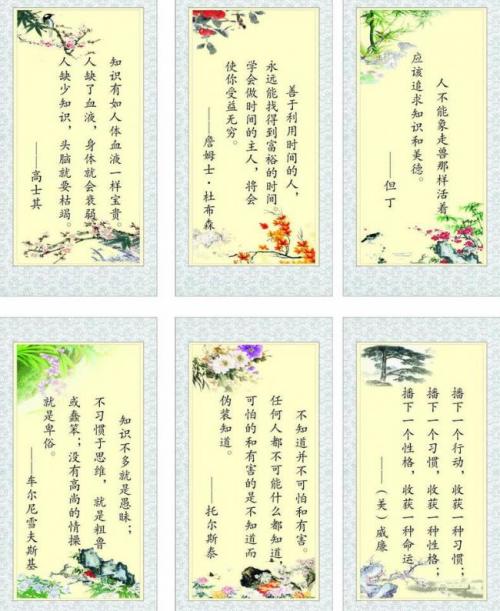 知识有如人体血液一样宝贵
人缺了血液，身体就会衰弱
人缺少知识，头脑就要枯竭。
——高士其
善于利用时间的人，
永远能找得到富裕的时间。
学会做时间的主人，将会
使你受益无穷。
——詹姆士·杜布森
人不能象走兽那样活着
应该追求知识和美德。
——但丁
知识不多就是愚昧；
不习惯于思维，就是粗鲁
或蠢笨；没有高尚的情操
就是卑俗。
——车尔尼雪夫斯基
不知道并不可怕和有害。
任何人都不可能什么都知道
可怕的和有害的是不知道而
伪装知道。
——托尔斯泰
播下一个行动，收获一种习惯；
播下一个习惯，收获一种性格；
播下一个性格，收获一种命运
——（美）威廉